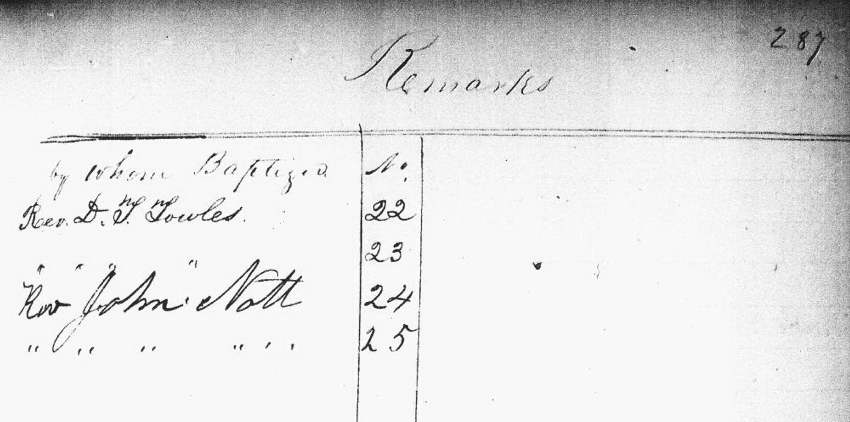 287
Remarks
by whom Baptized No.
Rev. D. T. Towles. 22
" " " " 23
Rev John Nott 24
" " " " " " 25